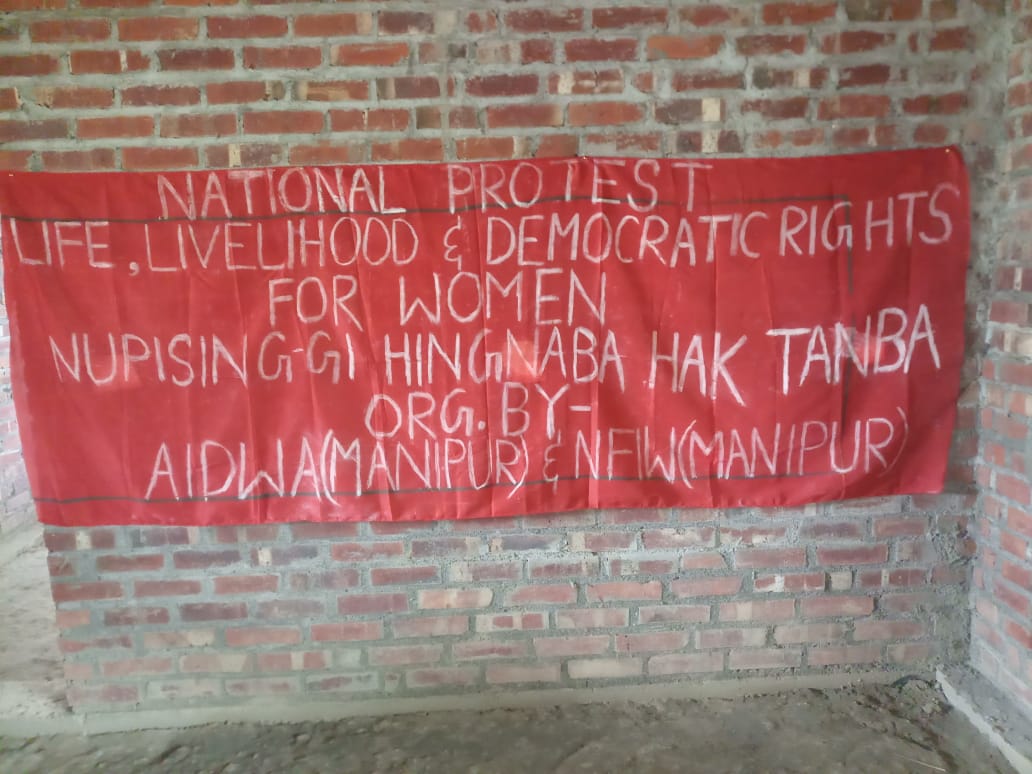 NATIONAL PROTEST
LIFE, LIVELIHOOD & DEMOCRATIC RIGHTS
FOR WOMEN
NUPISING-GI HINGNABA HAK TANBA
ORG. BY-
AIDWA(MANIPUR) & NFIW(MANIPUR)